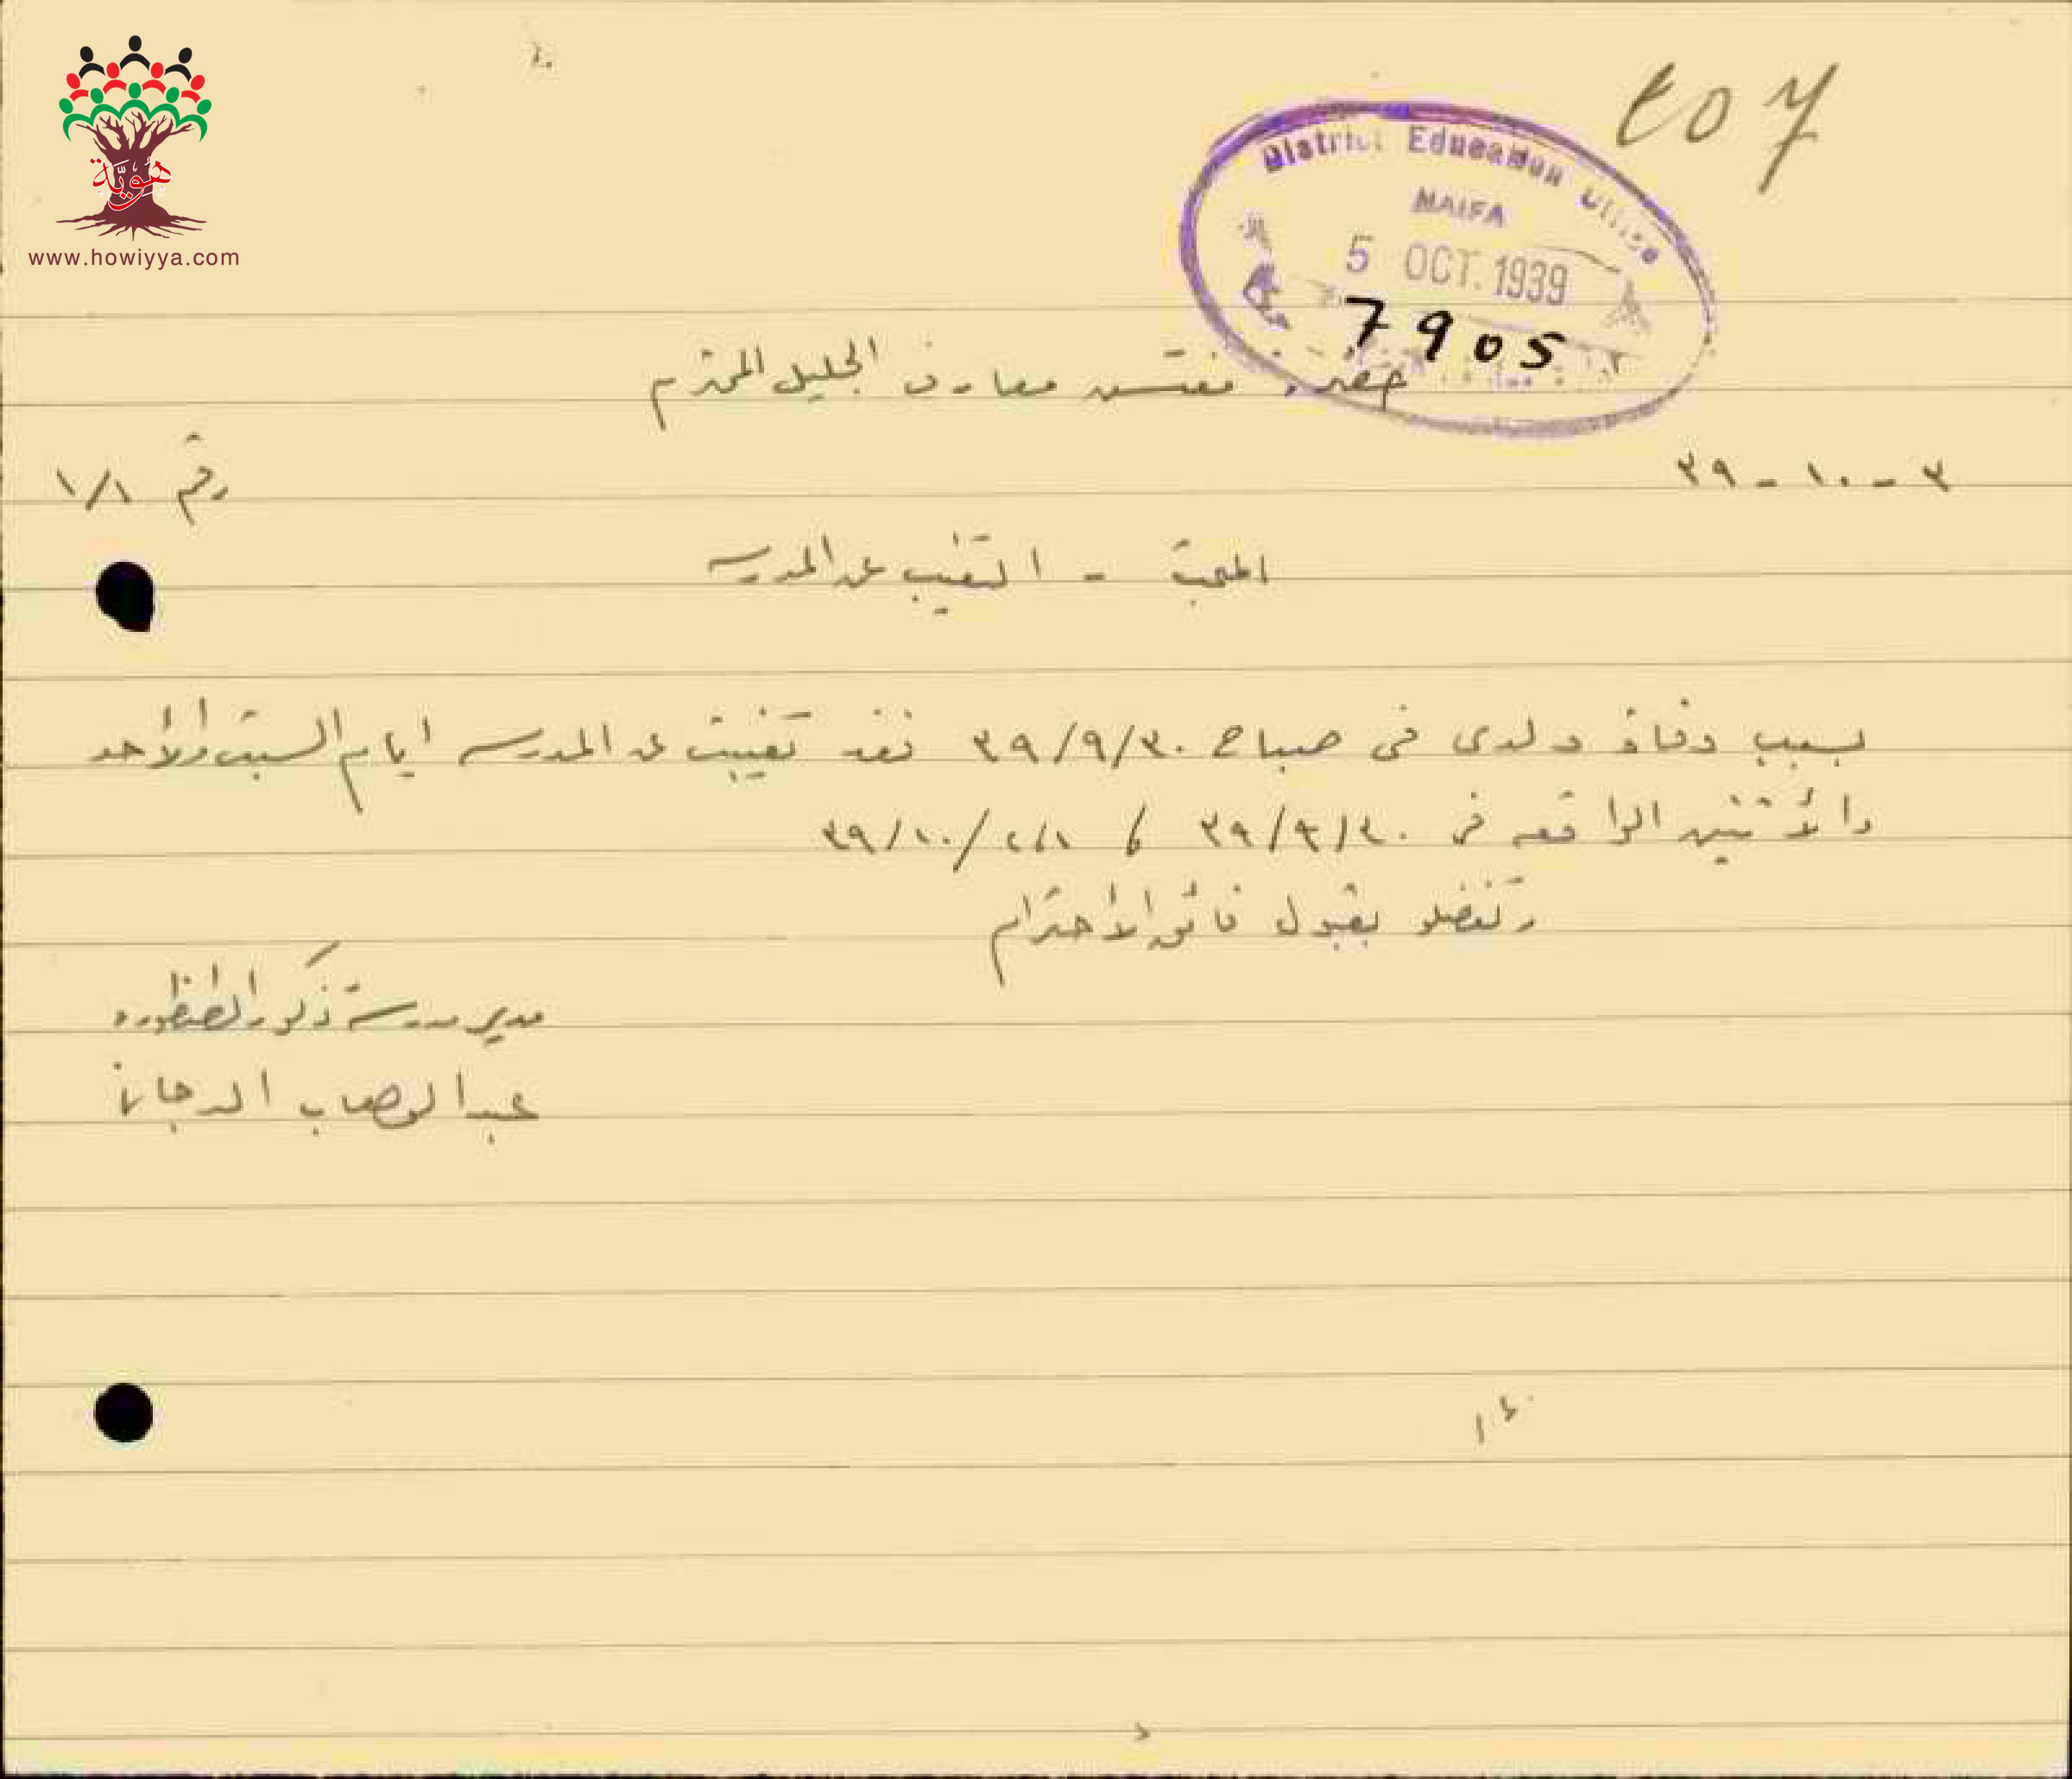 هُويَّة
www.howiyya.com
District Education Office
HAIFA
5 OCT. 1939
7905
حضرة مفتش معارف الجليل المحترم
٣ - ١٠ - ٣٩
رقم ١/١
المبحث - التغيب عن المدرسه
بسبب وفاة ولدى فى صباح ٣٠/٩/٣٩ فقد تغيبت عن المدرسه ايام السبت والأحد
والأثنين الواقعه فى ٣٠/٩/٣٩ ، ١،٢/١٠/٣٩
وتفضلو بقبول فائق الأحترام
مدير مدرسة ذكور الطنطوره
عبد الوهاب الدجانى